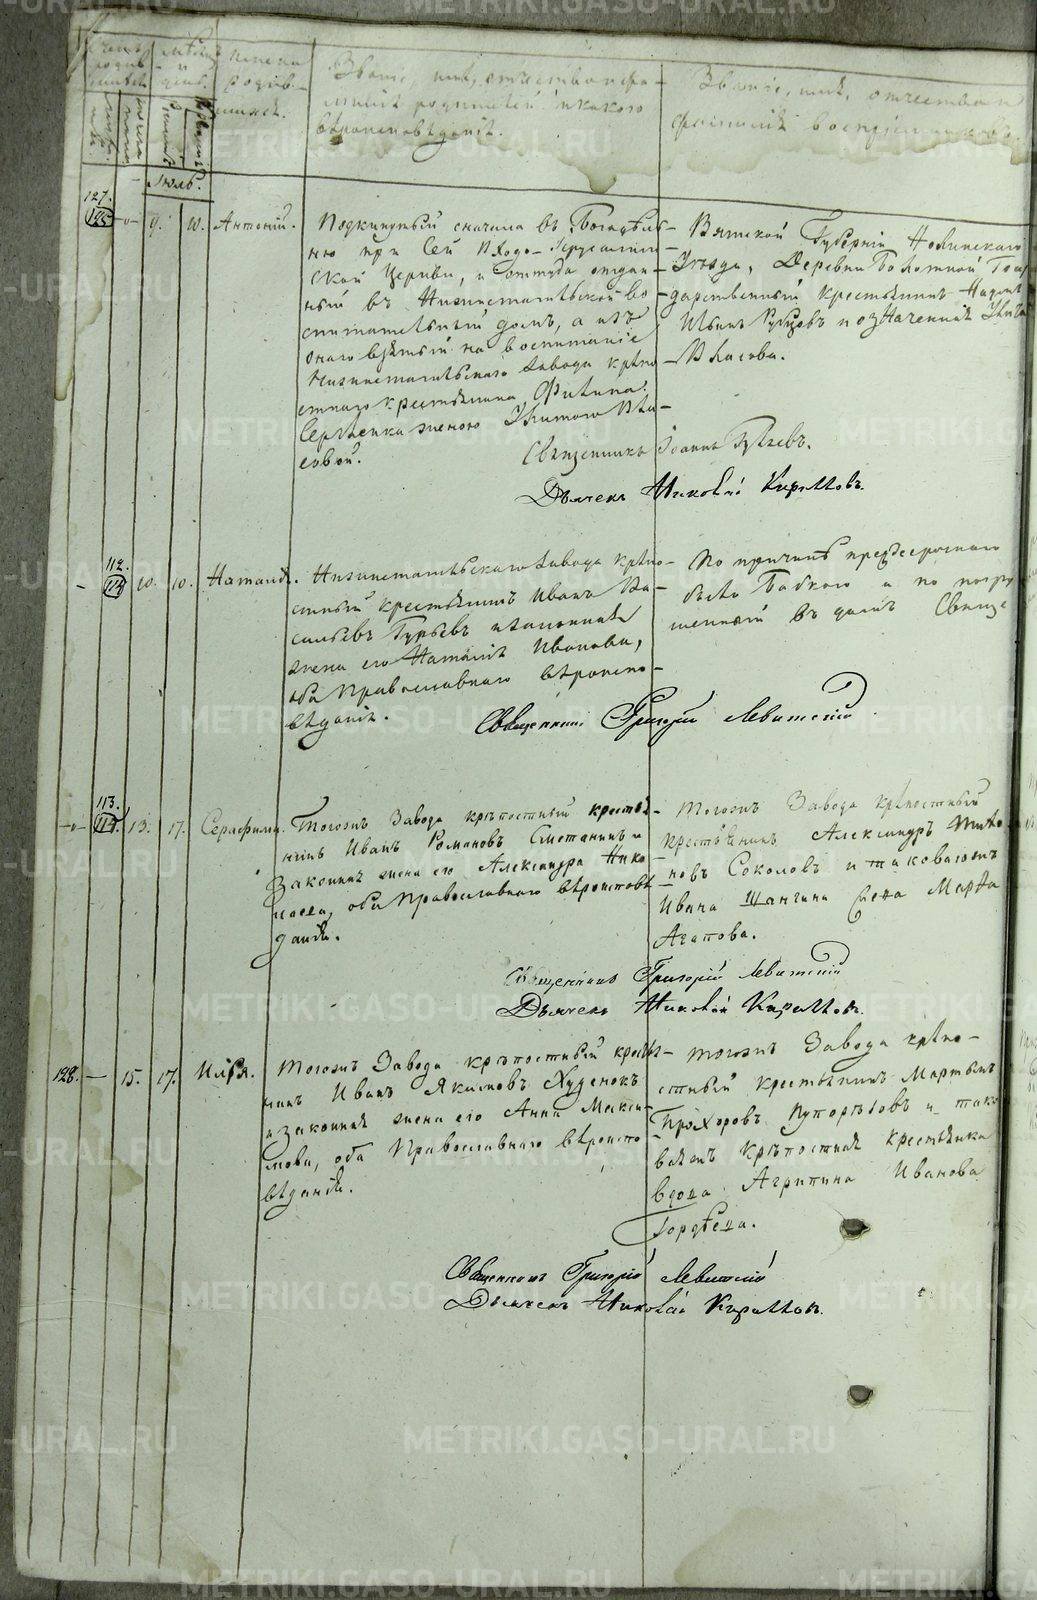 Счетъ родив- шихся. Мѣсяцъ и день. Имена родив- шихся.
Званіе, имя, отчество и фа-
милія родителей и какого
вѣроисповѣданія.
Званіе, имя, отчество и
фамилія воспріемниковъ.
Іюль.
127.
125 9. 10. Антоній.
Подкинутый сначала въ Богадѣль-
ню при Сей Входо-Іерусалим-
ской Церкви, и оттуда отдан-
ный въ Нижнетагильской Во-
спитательный домъ, а изъ
онаго взятый на воспитаніе
Нижнетагильскаго Завода крѣпо-
стнаго крестьянина Филипа
женою Улитою Вла-
совой.
Вятской Губерніи Нолинскаго
Уѣзда, Деревни Болотной Госу-
дарственный крестьянинъ Наумъ
Ильинъ Рубцовъ и означенная Улита
Власова.
Священникъ Іоаннъ
Дьячекъ Николай Кирилловъ.
112.
10. 10. Наталія.
Нижнетагильскаго Завода крѣпо-
стный крестьянинъ Иванъ Ва-
сильевъ Гурьевъ и законная
жена его Наталія Иванова,
оба Православнаго вѣроиспо-
вѣданія.
По причинѣ
Бабкою и по погру-
женной въ домѣ Свяще
Священникъ Григорій Левитскій
113.
13. 17. Серафима.
Тогожъ Завода крѣпостный кресть-
нинъ Иванъ Романовъ Сметанинъ и
Законная жена его Александра Нико-
лаева, оба Православнаго вѣроисповѣ-
данія.
Тогожъ Завода крѣпостный
крестьянинъ Александръ Тихо-
новъ Соколовъ и таковагожъ
Ивана Шангина жена Марѳа
Агапова.
Священникъ Григорій Левитскій
Дьячекъ Николай Кирилловъ.
128. — 15. 17. Илья.
Тогожъ Завода крѣпостный кресть-
нинъ Иванъ Якимовъ Худенокъ
и законная жена его Анна Макси-
мова, оба Православнаго вѣроиспо-
вѣданія.
Тогожъ Завода крѣпо-
стный крестьянинъ Мартынъ
Прохоровъ и тако-
ваяжъ крѣпостная крестьянка
вдова Агрипина Иванова
Гордѣева.
Священникъ Григорій Левитскій
Дьячекъ Николай Кирилловъ.